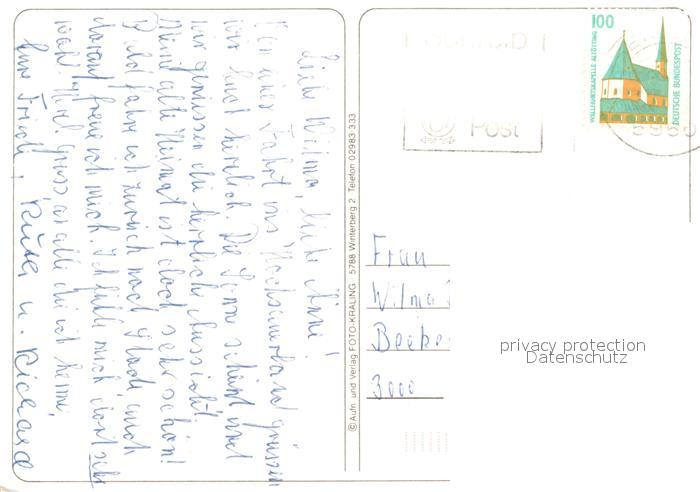 Liebe Wilma, liebe Änne!
Von einer Fahrt ins Hochsauerland grüssen
wir Euch herzlich. Die Sonne scheint und
wir geniessen die herrliche Aussicht.
Meine alte Heimat ist doch sehr schön!
Bald fahre ich zurück nach
darauf freue ich mich. Ich fühle mich dort sehr
wohl. Viele Grüsse an alle die ich kenne,
Eure Friedl, u. Richard
© Aufn. und Verlag FOTO-KRALING 5788 Winterberg 2 Telefon 02983 333
Post
100
WALLFAHRTSKAPELLE ALTÖTTING
DEUTSCHE BUNDESPOST
Frau
Wilma
Becke
3000
privacy protection
Datenschutz